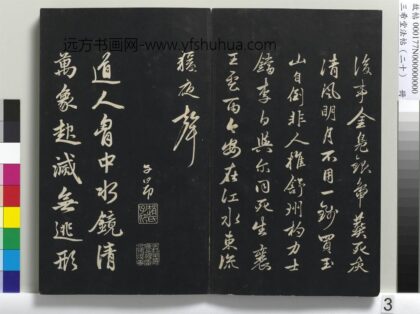 远方书画网-www.yfshuhua.com
後事金鳧銀鴨葬死灰
清風明月不用一錢買玉
山自倒非人推舒州杓力士
鐺李白與爾同死生襄
王雲雨今安在江水東流
猿夜聲
子昂
道人胷中水鏡清
萬象起滅無逃形
故帖 000177N000000000
三希堂法帖(二十) 冊
3